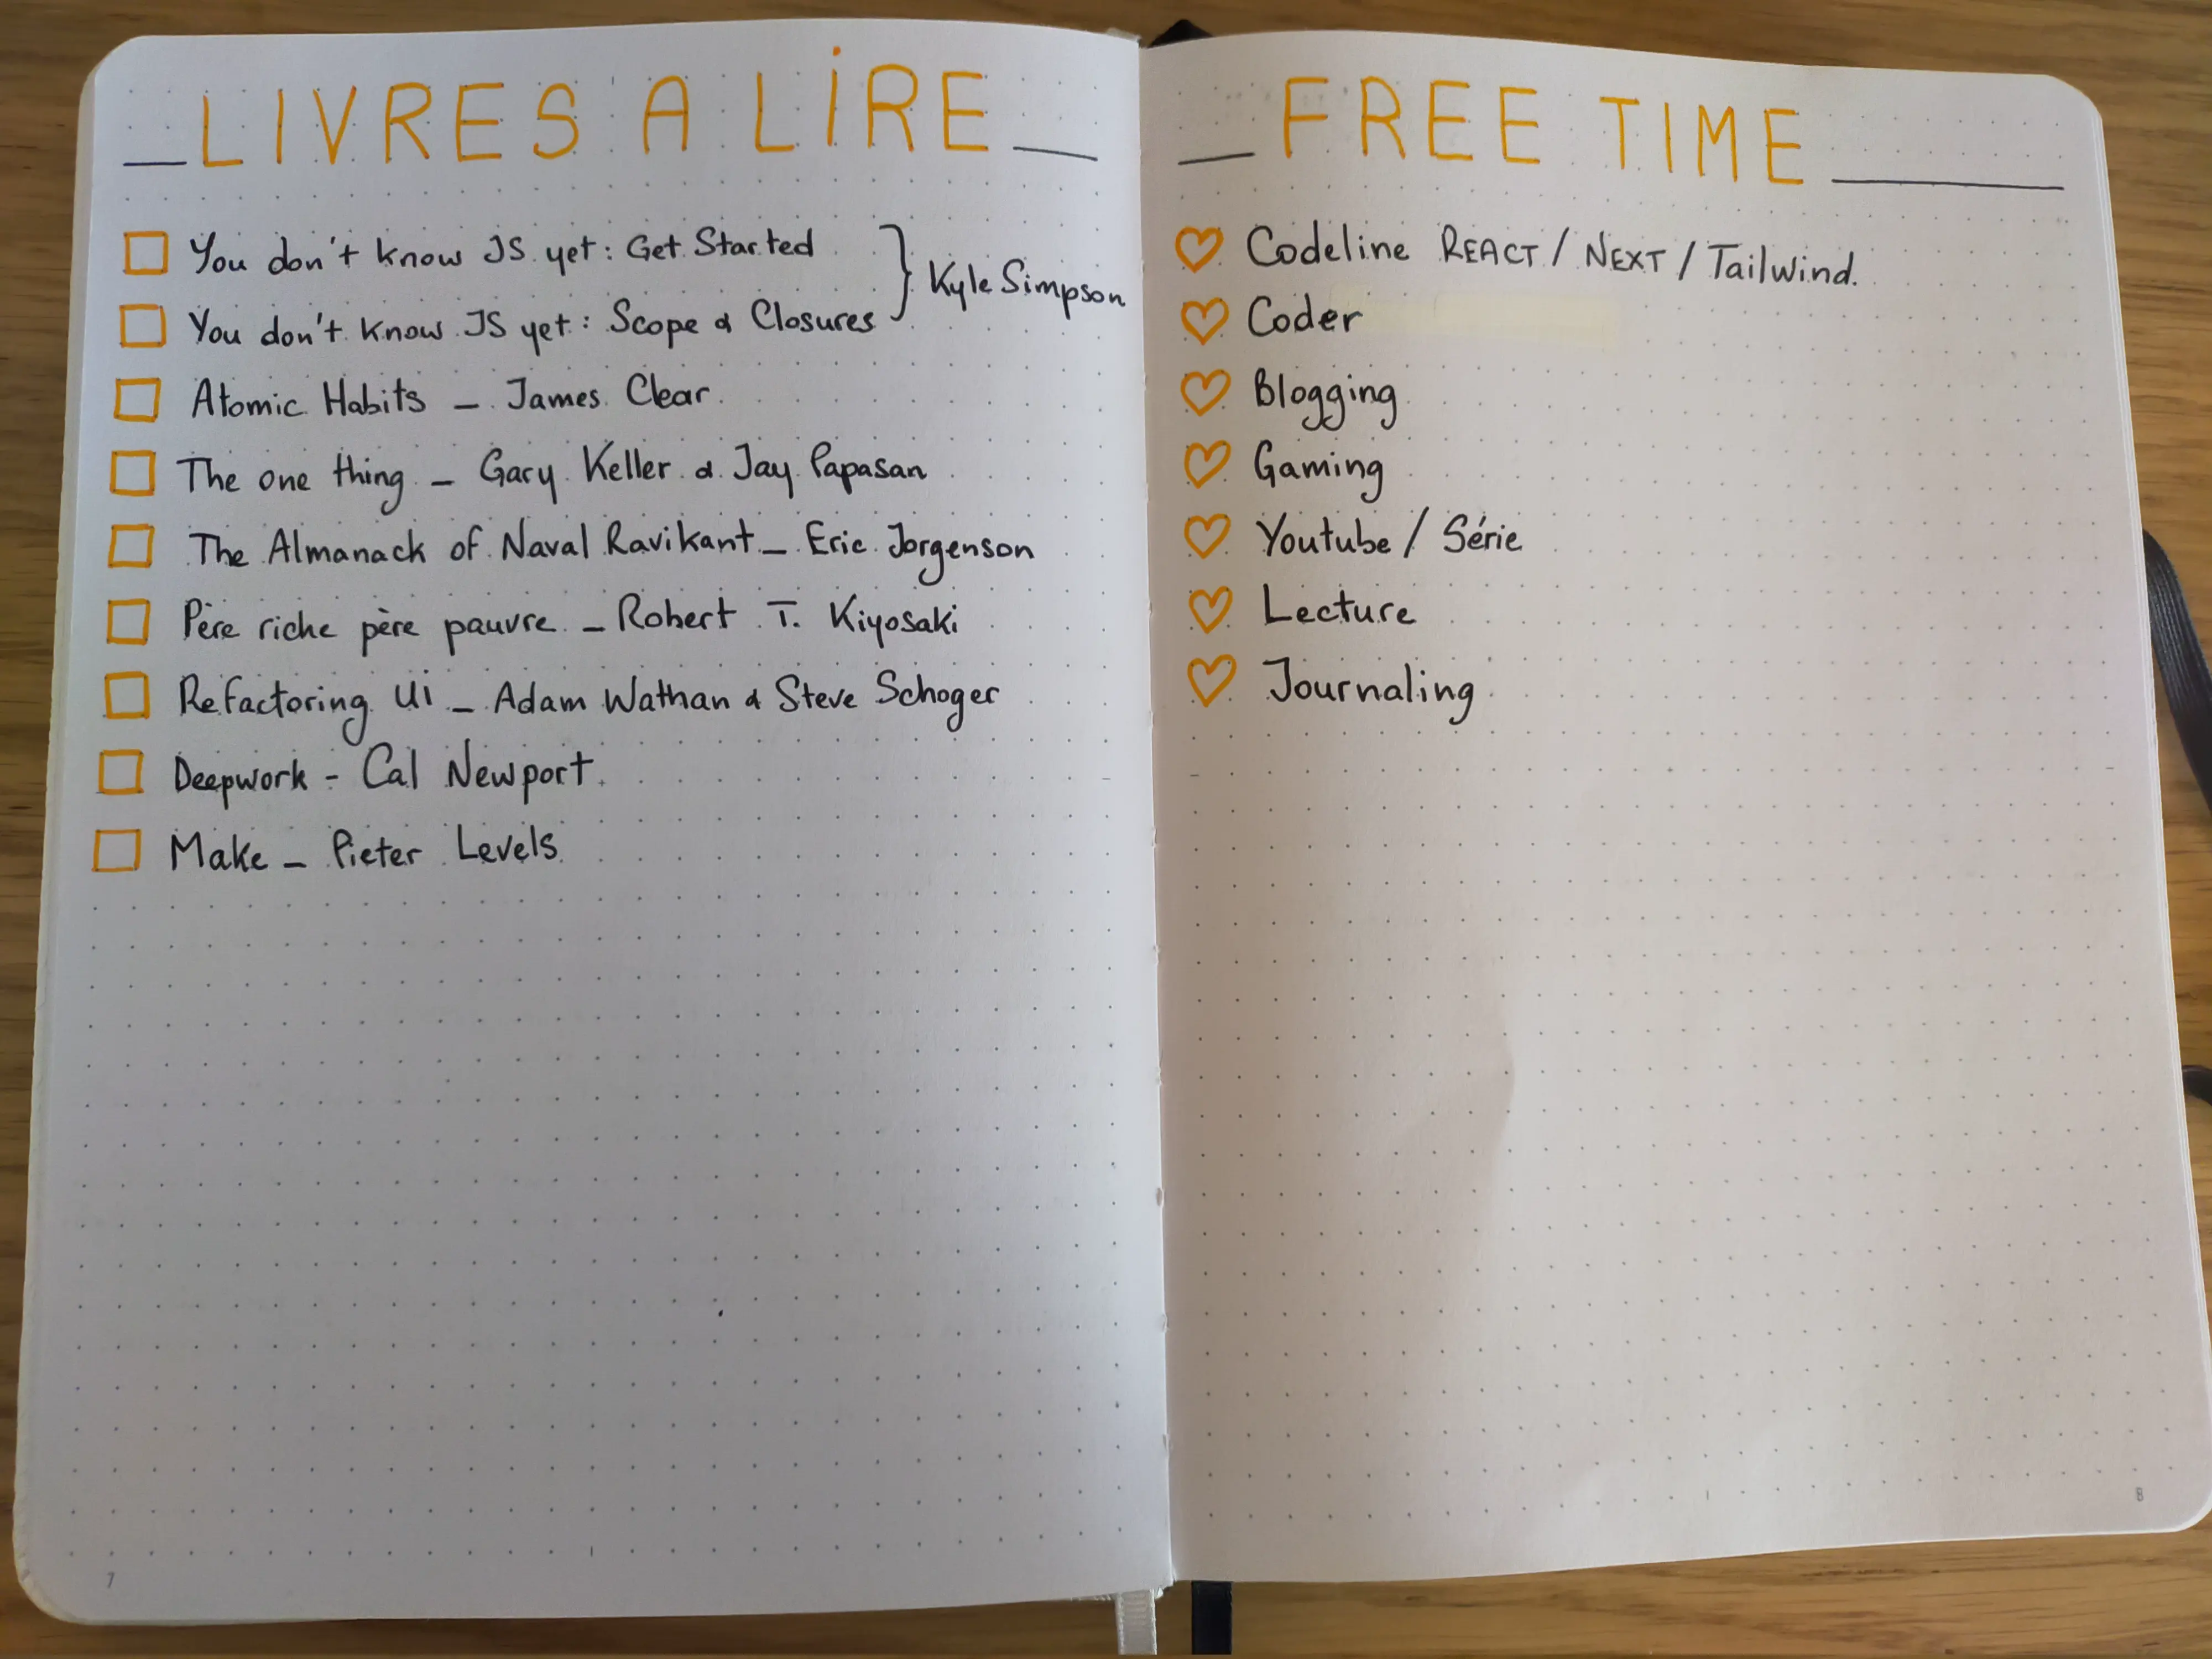 LIVRES A LIRE
You don't know JS yet: Get Started
You don't know JS yet: Scope & Closures
Kyle Simpson
Atomic Habits - James Clear
The one thing - Gary Keller & Jay Papasan
The Almanack of Naval Ravikant - Eric Jorgenson
Père riche père pauvre - Robert T. Kiyosaki
Refactoring Ui - Adam Wathan & Steve Schoger
Deepwork - Cal Newport
Make - Pieter Levels
7
FREE TIME
Codeline REACT / NEXT / Tailwind.
Coder
Blogging
Gaming
Youtube / Série
Lecture
Journaling
8